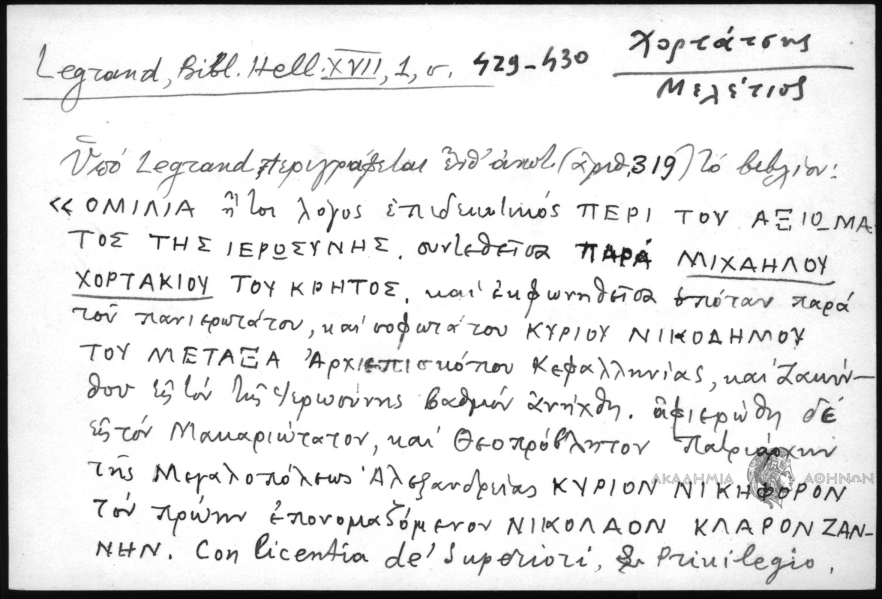 Legrand, Bibl. Hell. XVII, 1, σ. 429-430
Χορτάτσης
Μελέτιος
Ὑπό Legrand, περιγράφεται (ἀριθ. 319) τό βιβλίον:
«ΟΜΙΛΙΑ ἤτοι λόγος ἐπιδεικτικός ΠΕΡΙ ΤΟΥ ΑΞΙΩΜΑ-
ΤΟΣ ΤΗΣ ΙΕΡΩΣΥΝΗΣ. συντεθεῖσα ΠΑΡΑ ΜΙΧΑΗΛΟΥ
ΧΟΡΤΑΚΙΟΥ ΤΟΥ ΚΡΗΤΟΣ, καί ἐκφωνηθεῖσα ὁπόταν παρά
τοῦ πανιερωτάτου, καί σοφωτάτου ΚΥΡΙΟΥ ΝΙΚΟΔΗΜΟΥ
ΤΟΥ ΜΕΤΑΞΑ Ἀρχιεπισκόπου Κεφαλληνίας, καί Ζακύν-
θου εἰς τόν τῆς Ἱερωσύνης βαθμόν ἀνήχθη. ἀφιερώθη δέ
εἰς τόν Μακαριώτατον, καί Θεοπρόβλητον Πατριάρχην
τῆς Μεγαλοπόλεως Ἀλεξανδρείας ΚΥΡΙΟΝ ΝΙΚΗΦΟΡΟΝ
τόν πρώην ἐπονομαζόμενον ΝΙΚΟΛΑΟΝ ΚΛΑΡΟΝΖΑΝ-
ΝΗΝ. Con licentia de' Superiori, & Privilegio.
ΑΚΑΔΗΜΙΑ ΑΘΗΝΩΝ